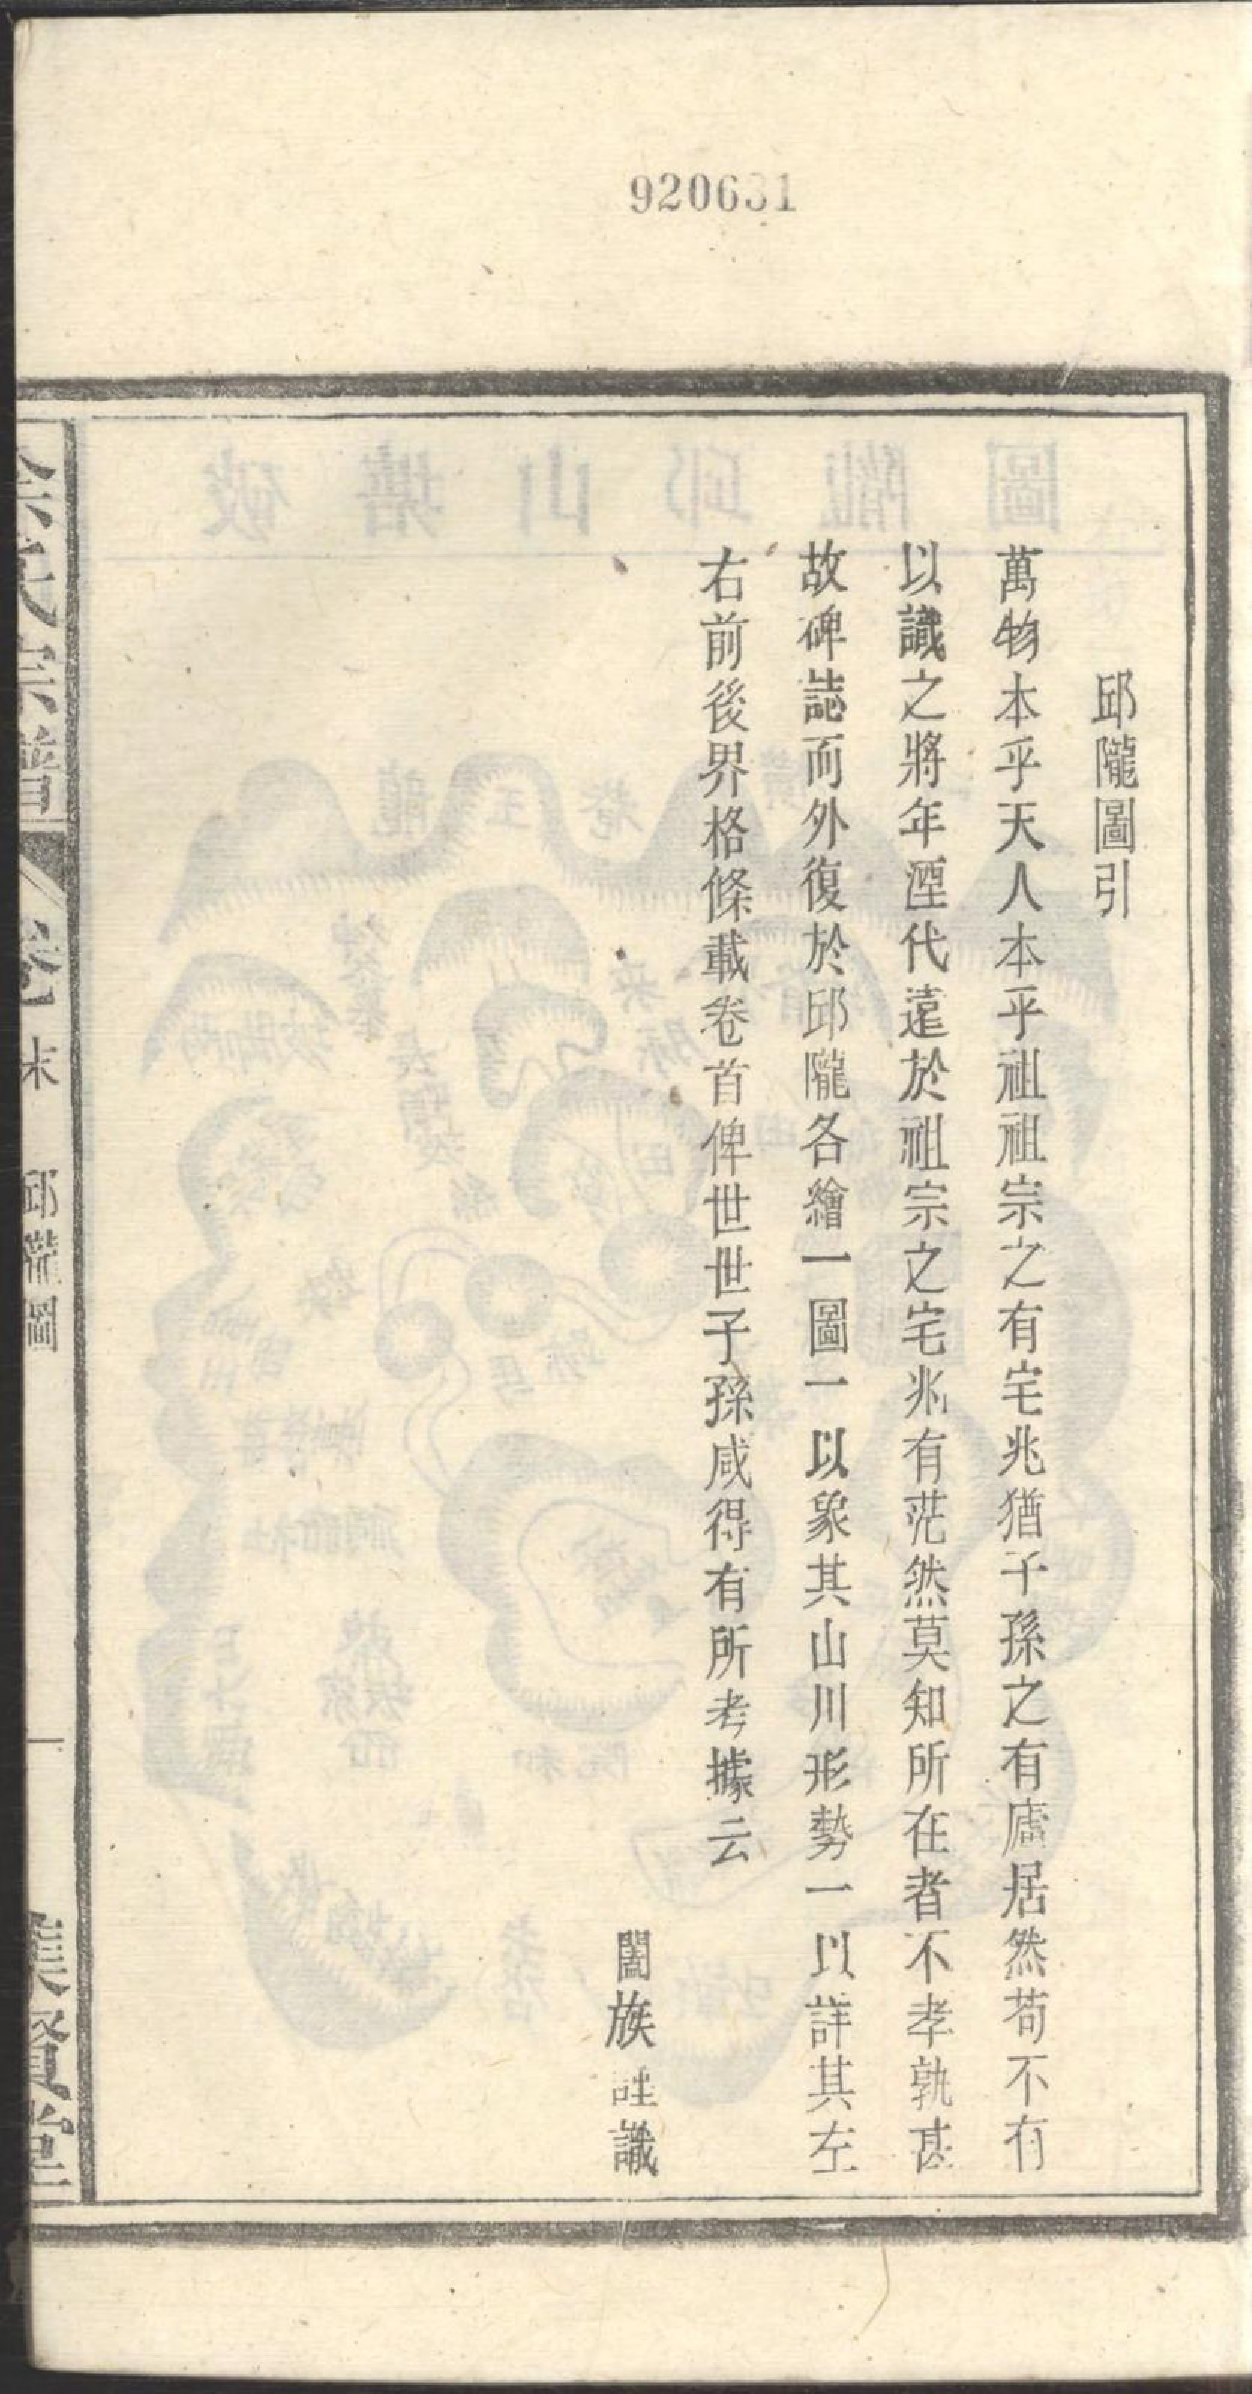 920631
邱隴圖引
萬物本乎天人本乎祖祖宗之有宅兆猶子孫之有廬居然苟不有
以識之將年湮代遠於祖宗之宅兆有茫然莫知所在者不孝孰甚
故碑誌而外復於邱隴各繪一圖一以象其山川形勢一以詳其左
右前後界格條載卷首俾世世子孫咸得有所考據云
闔族謹識
氏宗譜
卷末
邱隴圖
一
集賢堂